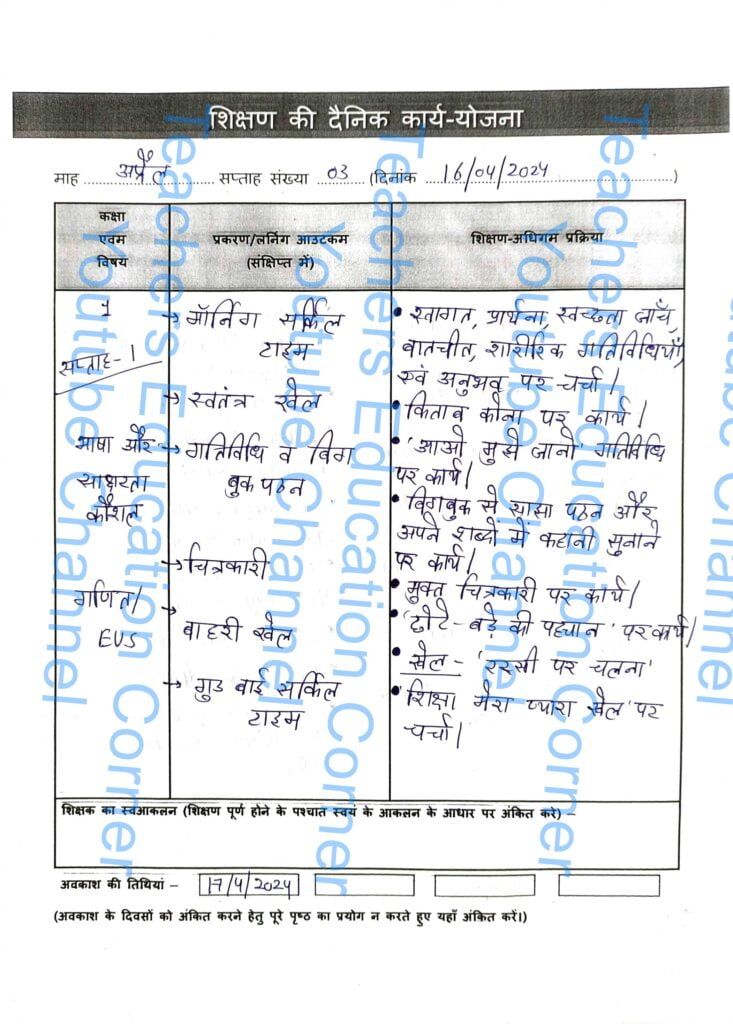 शिक्षण की दैनिक कार्य-योजना
माह अप्रैल सप्ताह संख्या 03 (दिनांक 16/04/2024)
कक्षा
एवम
विषय
प्रकरण/लर्निंग आउटकम
(संक्षिप्त में)
शिक्षण-अधिगम प्रक्रिया
1
सप्ताह-1
भाषा और
साक्षरता
कौशल
गणित/
EVS
→ मॉर्निंग सर्किल
टाइम
→ स्वतंत्र खेल
→ गतिविधि व बिग
बुक पठन
→ चित्रकारी
→
बाहरी खेल
→ गुड बाई सर्किल
टाइम
• स्वागत, प्रार्थना, स्वच्छता जाँच,
वातचीत, शारीरिक गतिविधियाँ,
एवं अनुभव पर चर्चा।
• किताब कोना पर कार्य।
• 'आओ मुझे जानो' गतिविधि
पर कार्य।
• बिगबुक से साझा पठन और
अपने शब्दों में कहानी सुनाने
पर कार्य।
• मुक्त चित्रकारी पर कार्य।
• 'छोटे-बड़े की पहचान' पर कार्य।
• खेल - 'रस्सी पर चलना'
• 'शिक्षा मेरा प्यारा खेल' पर
चर्चा।
शिक्षक का स्वआकलन (शिक्षण पूर्ण होने के पश्चात स्वयं के आकलन के आधार पर अंकित करे) –
अवकाश की तिथियां – 17/4/2024
(अवकाश के दिवसों को अंकित करने हेतु पूरे पृष्ठ का प्रयोग न करते हुए यहाँ अंकित करें।)
Teachers Education Corner
Youtube Channel
Teachers Education Corner
Youtube Channel
Teachers Education Corner
Youtube Channel